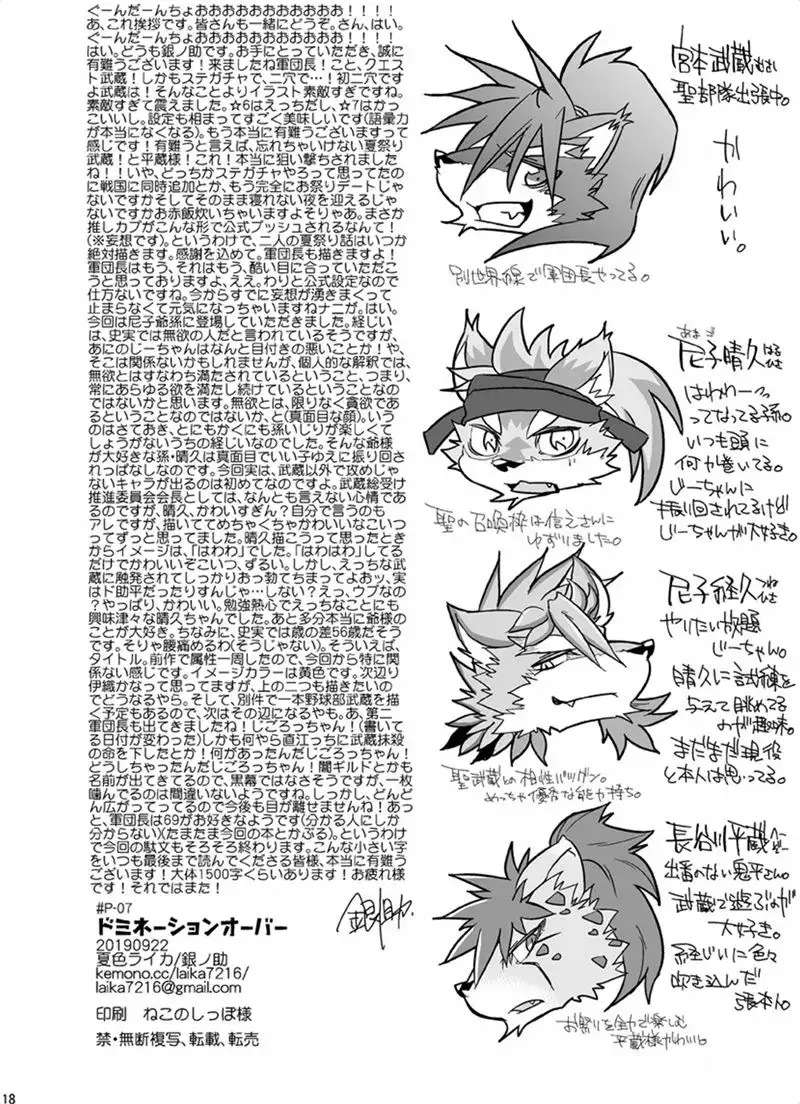 ぐーんだーんちょおおおおおおおおおおお!!!!
あ、これ挨拶です。皆さんも一緒にどうぞ。さん、はい。
ぐーんだーんちょおおおおおおおおおおお!!!!
はい。どうも銀ノ助です。お手にとっていただき、誠に
有難うございます!来ましたね軍団長!こと、クエス
ト武蔵!しかもステガチャで、二穴で…!初二穴です
よ武蔵は!そんなことよりイラスト素敵すぎですね。
素敵すぎて震えました。☆6はえっちだし、☆7はかっ
こいいし。設定も相まってすごく美味しいです(語彙力
が本当になくなる)。もう本当に有難うございますって
感じです!有難うと言えば、忘れちゃいけない夏祭り
武蔵!と平蔵様!これ!本当に狙い撃ちされました
ね!!いや、どっちかステガチャやろって思ってたの
に戦国に同時追加とか、もう完全にお祭りデートじゃ
ないですかそしてそのまま寝れない夜を迎えるじゃ
ないですかお赤飯炊いちゃいますよそりゃあ。まさか
推しカプがこんな形で公式プッシュされるなんて!
(※妄想です)。というわけで、二人の夏祭り話はいつか
絶対描きます。感謝を込めて。軍団長も描きますよ!
軍団長はもう、それはもう、酷い目に合っていただこ
うと思っておりますよ、ええ。わりと公式設定なので
仕方ないですね。今からすでに妄想が湧きまくって
止まらなくて元気になっちゃいますねナニが。はい。
今回は尼子爺孫に登場していただきました。経じい
は、史実では無欲の人だと言われているそうですが、
あにのじーちゃんはなんと目付きの悪いことか!や、
そこは関係ないかもしれませんが、個人的な解釈では、
無欲とはすなわち満たされているということ、つまり、
常にあらゆる欲を満たし続けているということなの
ではないかと思います。無欲とは、限りなく貪欲であ
るということなのではないか、と(真面目な顔)。いう
のはさておき、とにもかくにも孫いじりが楽しくて
しょうがないうちの経じいなのでした。そんな爺様
が大好きな孫・晴久は真面目でいい子ゆえに振り回さ
れっぱなしなのです。今回実は、武蔵以外で攻めじゃ
ないキャラが出るのは初めてなのですよ。武蔵総受け
推進委員会会長としては、なんとも言えない心情であ
るのですが、晴久、かわいすぎん?自分で言うのも
アレですが、描いててめちゃくちゃかわいいなこいつ
ってずっと思ってました。晴久描こうって思ったとき
からイメージは、「はわわ」でした。「はわはわ」してる
だけでかわいいぞこいつ、ずるい。しかし、えっちな武
蔵に触発されてしっかりおっ勃てちまってよおッ、実
はド助平だったりすんじゃ…しない?えっ、ウブなの
?やっぱり、かわいい。勉強熱心でえっちなことにも
興味津々な晴久ちゃんでした。あと多分本当に爺様の
ことが大好き。ちなみに、史実では歳の差56歳だそう
です。そりゃ腰痛めるわ(そうじゃない)。そういえば、
タイトル。前作で属性一周したので、今回から特に関
係ない感じです。イメージカラーは黄色です。次辺り
伊織かなって思ってますが、上の二つも描きたいの
でどうなるやら。そして、別件で一本野球部武蔵を描
く予定もあるので、次はその辺になるやも。あ、第二
軍団長も出てきましたね!じごろっちゃん!(書いて
る日付が変わった)しかも何やら直江っちに武蔵抹殺
の命を下したとか!何があったんだじごろっちゃん!
どうしちゃったんだじごろっちゃん!闇ギルドとかも
名前が出てきてるので、黒幕ではなさそうですが、一枚
噛んでるのは間違いないようですね。しっかし、どんど
ん広がってってるので今後も目が離せませんね!あっ
と、軍団長は69がお好きなようです(分かる人にしか
分からない)(たまたま今回の本とかぶる)。というわけ
で今回の駄文もそろそろ終わります。こんな小さい字
をいつも最後まで読んでくださる皆様、本当に有難う
ございます!大体1500字くらいあります!お疲れ様
です!それではまた!
#P-07
ドミネーションオーバー
20190922
夏色ライカ/銀ノ助
kemono.cc/laika7216/
laika7216@gmail.com
印刷 ねこのしっぽ様
禁・無断複写、転載、転売
銀ノ助
宮本武蔵むさし
聖部隊出張中。
かわいい。
別世界線で軍団長やってる。
あまご
尼子晴久はるひさ
はわわーっ
ってなってる孫。
いつも頭に
何か巻いてる。
じーちゃんに
振り回されてるけど
じーちゃんが大好き。
聖の召喚枠は信之さんに
ゆずりました。
尼子経久つねひさ
やりたい放題
じーちゃん。
晴久に試練を
与えて眺めてる
のが趣味。
まだまだ現役
と本人は思ってる。
聖武蔵との相性バツグン。
めっちゃ優秀な能力持ち。
長谷川平蔵へいぞー
出番のない鬼平さん。
武蔵で遊ぶのが
大好き。
経じいに色々
吹き込んだ
張本人。
お祭りを全力で楽しむ
平蔵様かわいい。
18